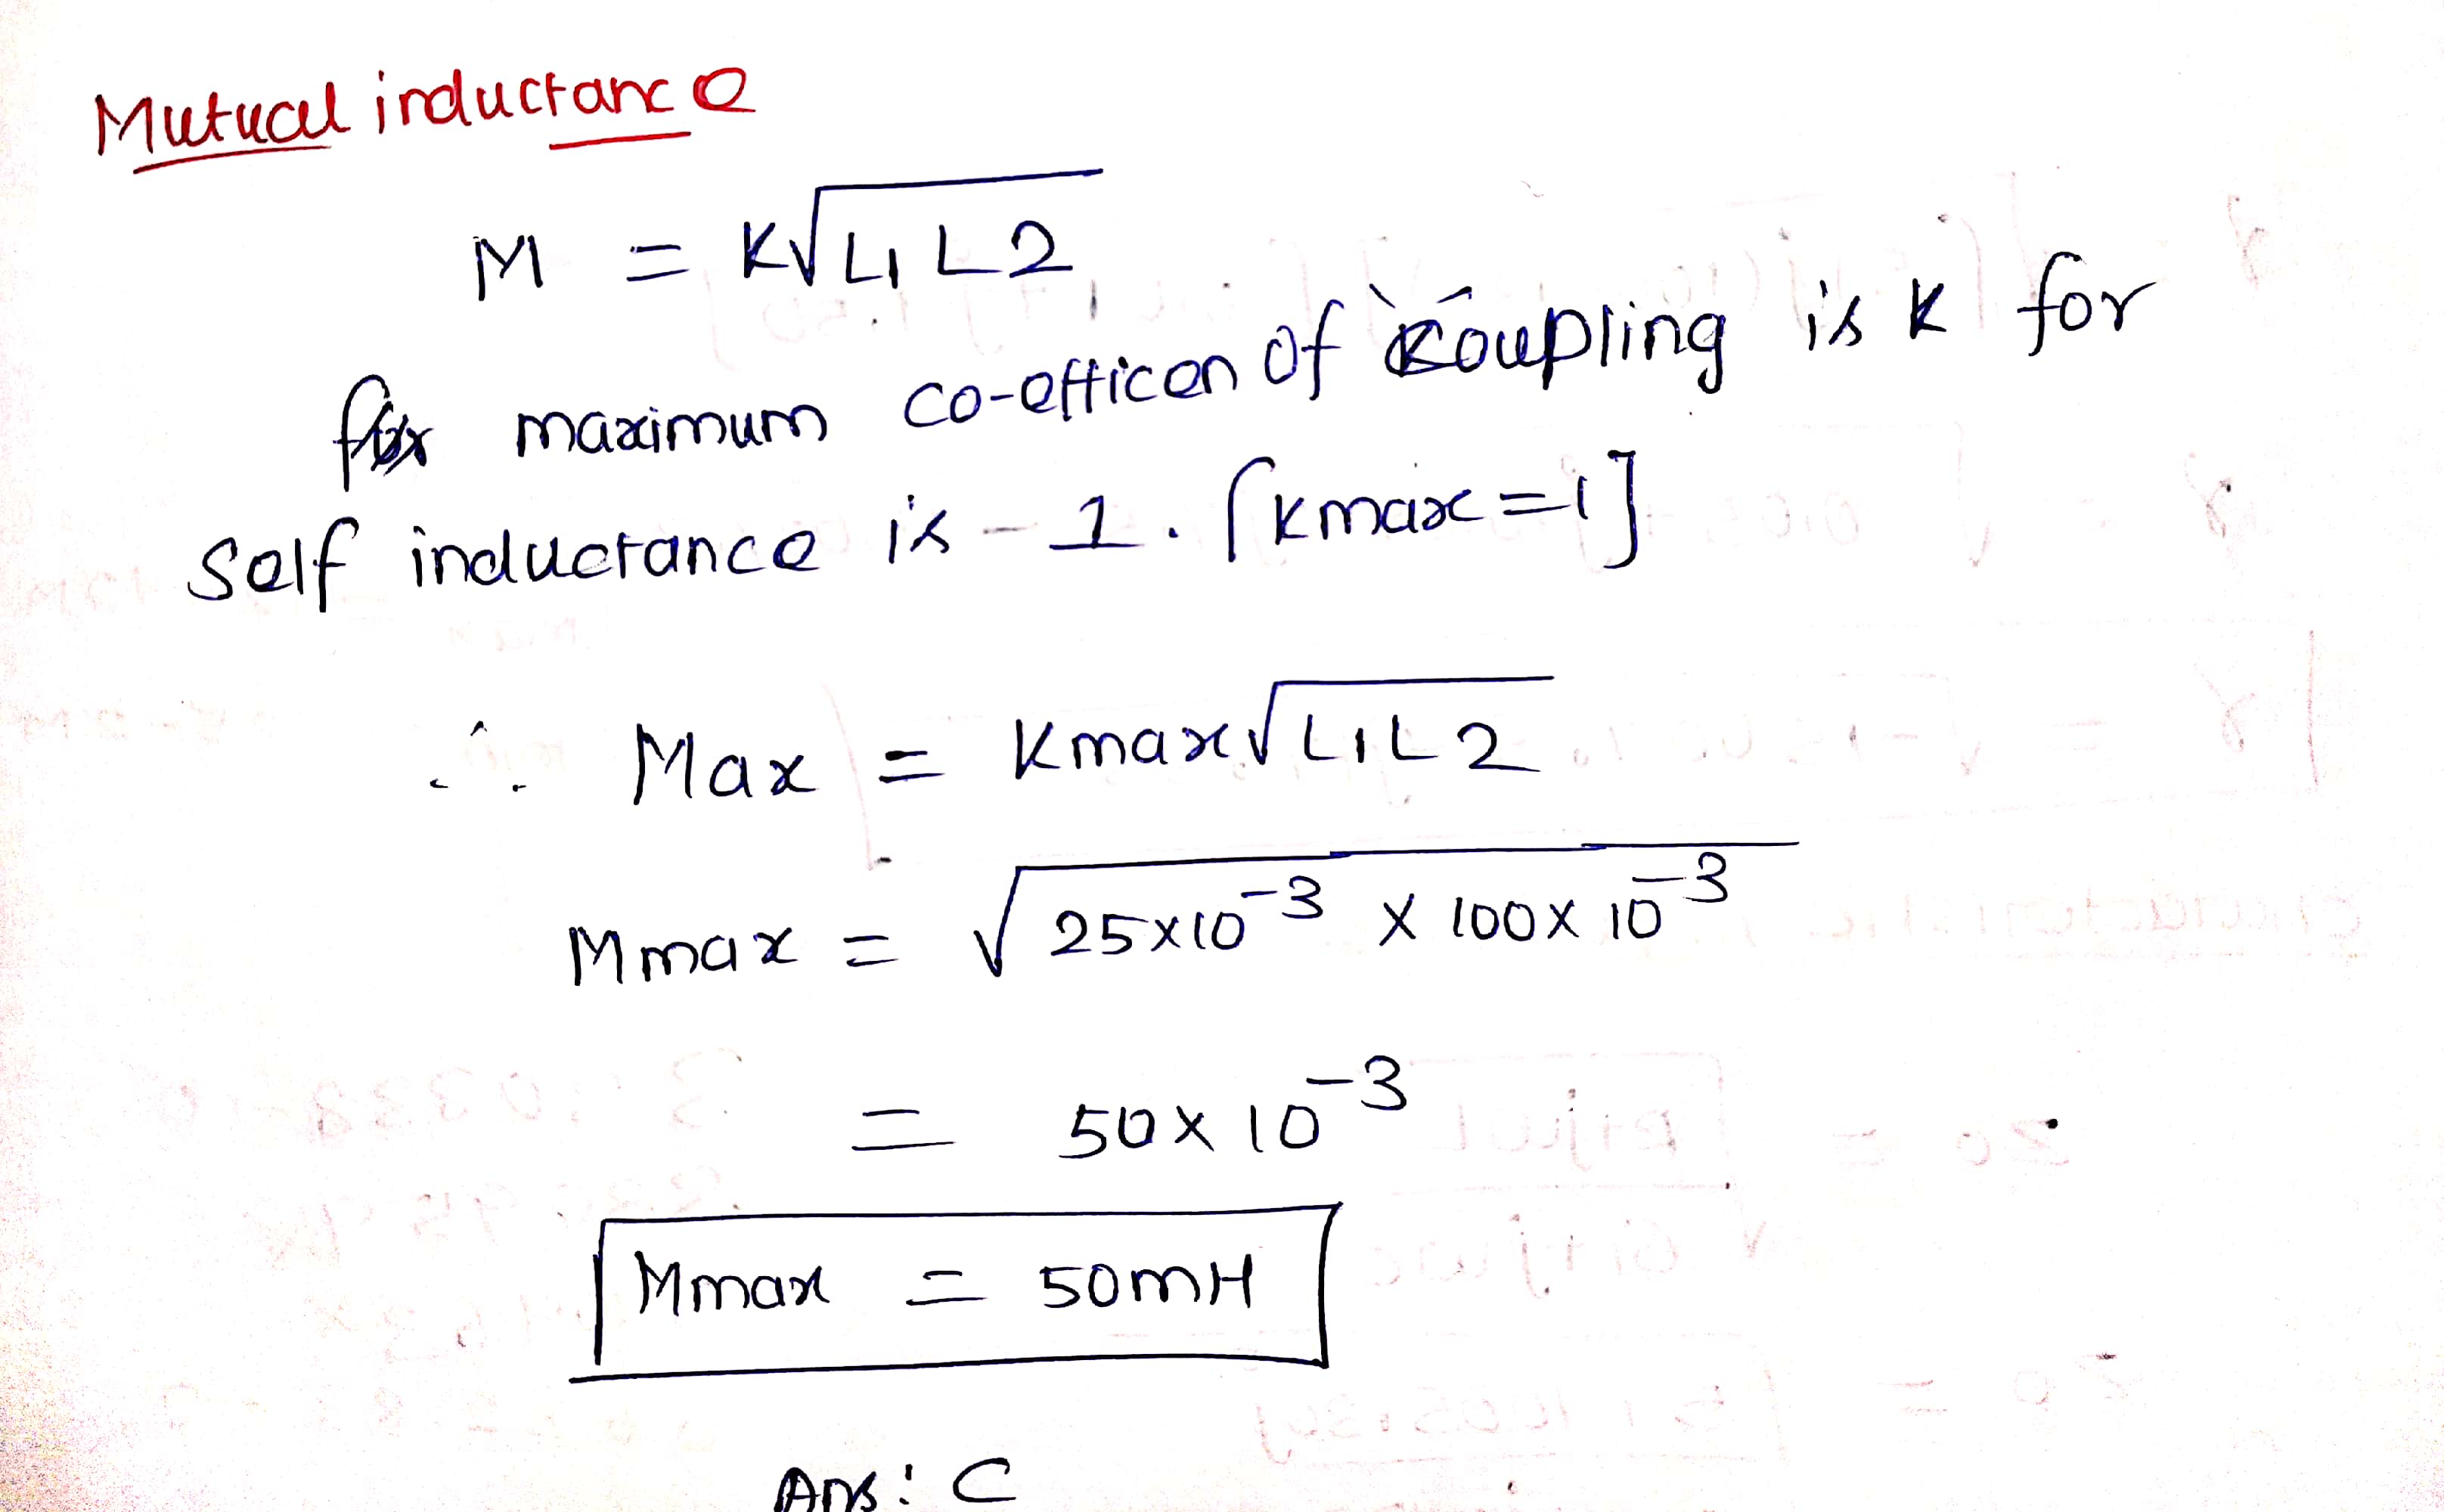 Mutual inductance
M = K√L1 L2
for maximum co-efficen of Coupling is K for
Self inductance is - 1. [Kmax=1]
∴ Max = Kmax√L1L2
Mmax = √25x10⁻³ x 100x10⁻³
= 50x10⁻³
Mmax = 50mH
Ans: C